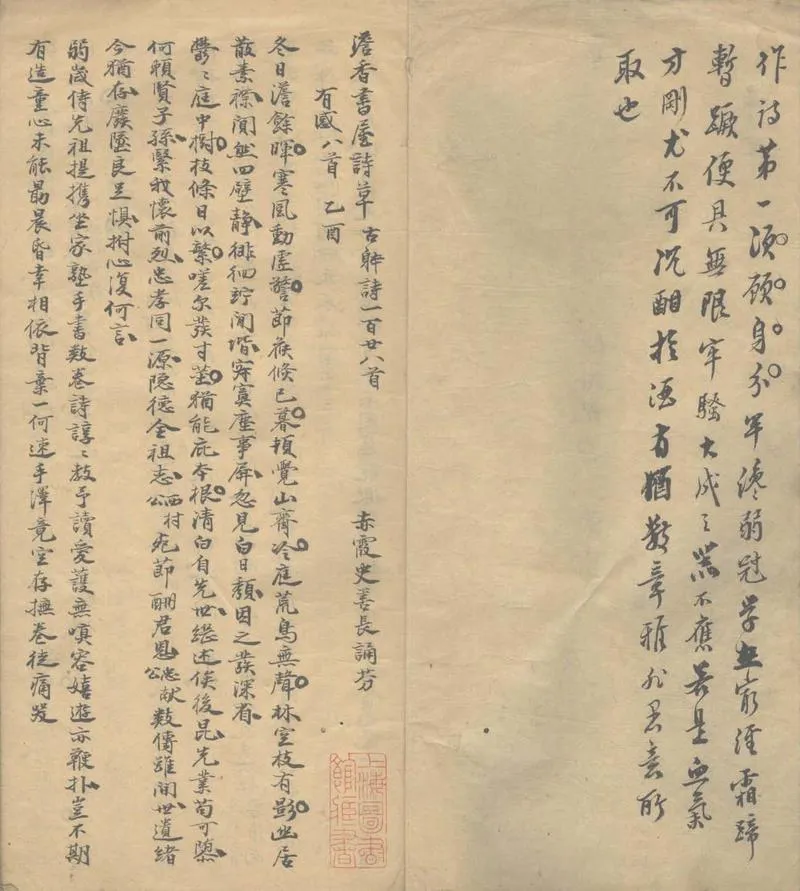 作詩第一須顧身分年纔弱冠學甫窮經霜蹄
暫蹶便具無限牢騷大成之器不應若是血氣
方剛尤不可沉酣於酒有猶數章雅非君意所
取也
澹香書屋詩草 古躰詩一百廿八首 赤霞史善長誦芬
有感八首 乙酉
冬日澹餘暉寒風動虛警節候倏已暮頓覺山齋冷庭荒鳥無聲林空枝有影幽居
散素襟闃然四壁靜徘徊竚閒堦寂寞塵事屏忽見白日頹因之發深省
鬱〻庭中樹枝條日以繁嗟尔發寸荄猶能庇本根清白自先世繼述俟後昆先業苟可墮
何賴賢子孫緊我懷前烈忠孝同一源隱德全祖志西村公死節酬君恩忠献公數傳雖閒世遺緒
今猶存廢墜良足懼拊心復何言
弱歲侍先祖提攜坐家塾手書數卷詩諄〻教予讀愛護無嗔容嬉遊亦鞭扑豈不期
有造童心未能勗晨昏幸相依背棄一何速手澤竟空存撫卷徒痛哭
上海圖書
館藏書